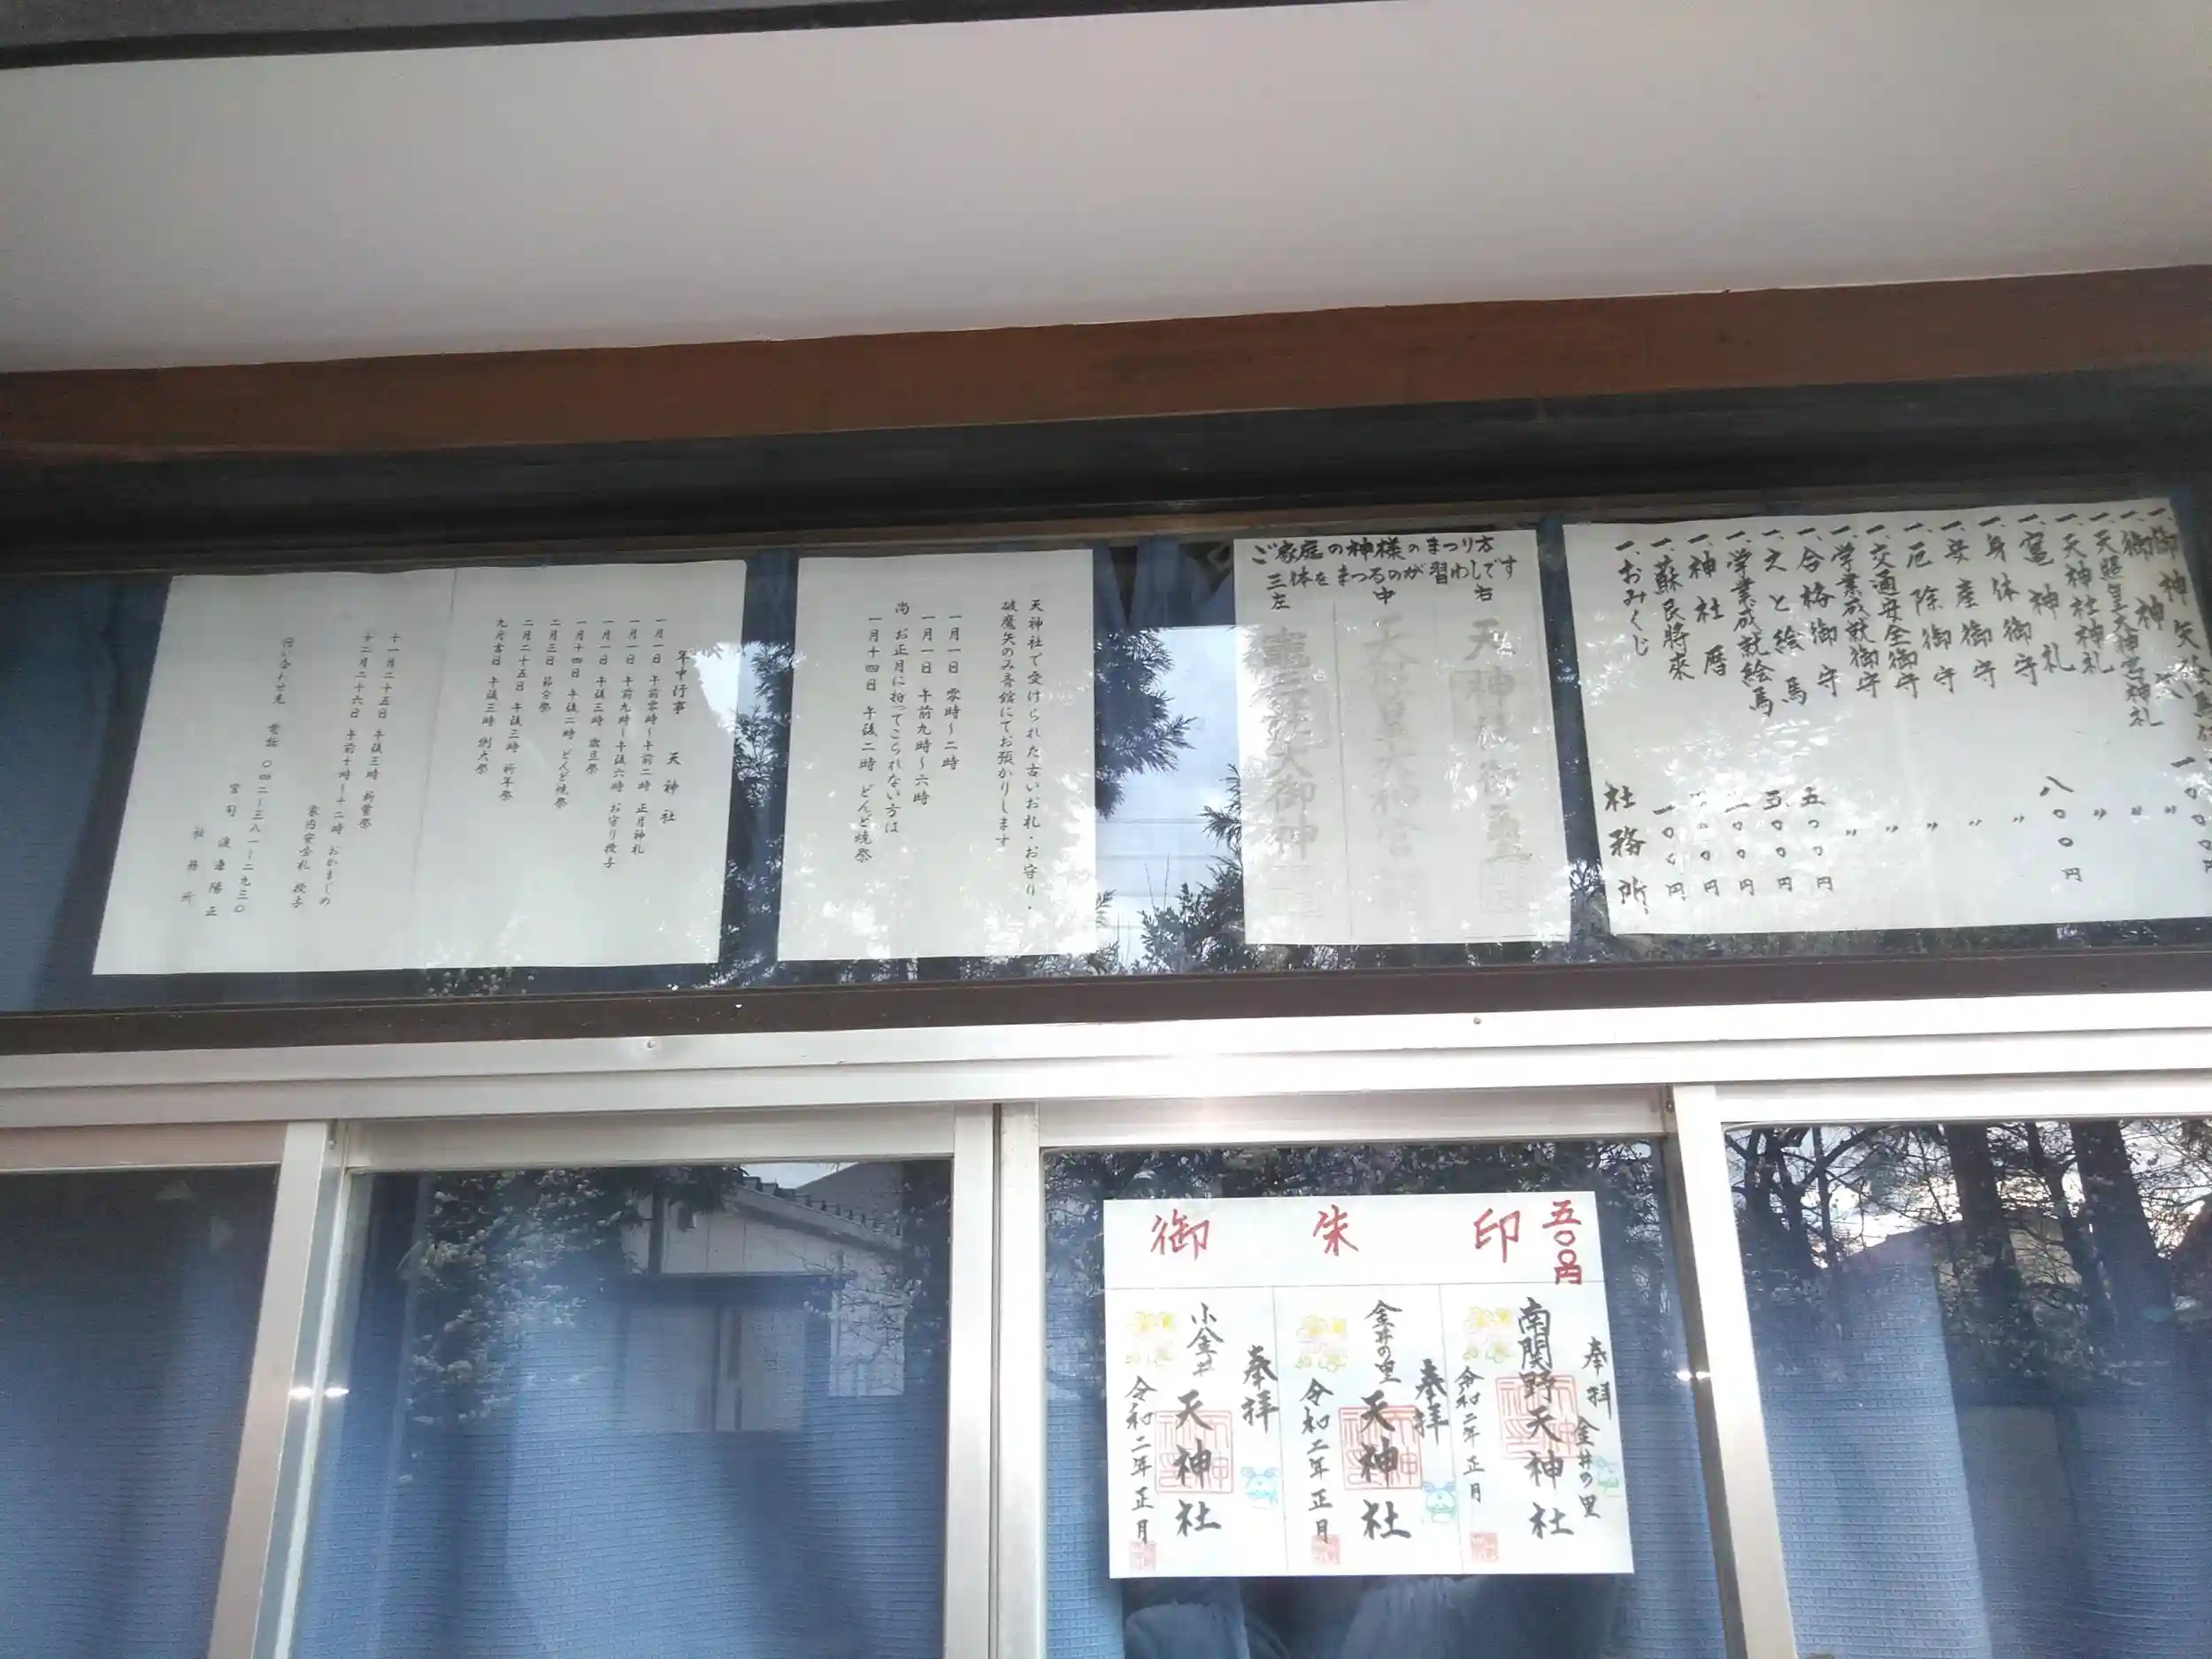 一、おみくじ 一〇〇円
一、蘇民将来
一、神社暦
一、学業成就絵馬
一、えと絵馬 五〇〇円
一、合格御守 五〇〇円
一、学業成就御守 〃
一、交通安全御守 〃
一、厄除御守 〃
一、安産御守 〃
一、身体御守 〃
一、竃神札 八〇〇円
一、天神社神札 〃
一、天照皇大神宮神札 〃
社務所
ご家庭の神様のまつり方
三体をまつるのが習わしです
右
中
左
天神社御璽
天照皇大神宮
竈三柱大御神
天神社で受けられた古いお札・お守り・
破魔矢のみ斉館にてお預かりします
一月一日 零時〜二時
一月一日 午前九時〜六時
尚 お正月に持ってこられない方は
一月十四日 午後二時 どんど焼祭
年中行事 天神社
一月一日 午前零時〜午前二時 正月神札
一月一日 午前九時〜午後六時 お守り授与
一月一日 午後三時 歳旦祭
一月十四日 午後二時 どんど焼祭
二月三日 節分祭
二月二十五日 午後三時 祈年祭
午後三時 例大祭
十一月二十五日 午後三時 新嘗祭
十二月二十六日 午前十時〜十二時 おかまじめの
家内安全札 授与
問い合わせ先 電話 〇四二ー三八一ー二九三〇
宮司 渡邊陽正
社務所
御朱印 五〇〇円
奉拝 金井の里
南関野天神社
令和二年正月
奉拝
金井の里 天神社
令和二年正月
奉拝
小金井 天神社
令和二年正月